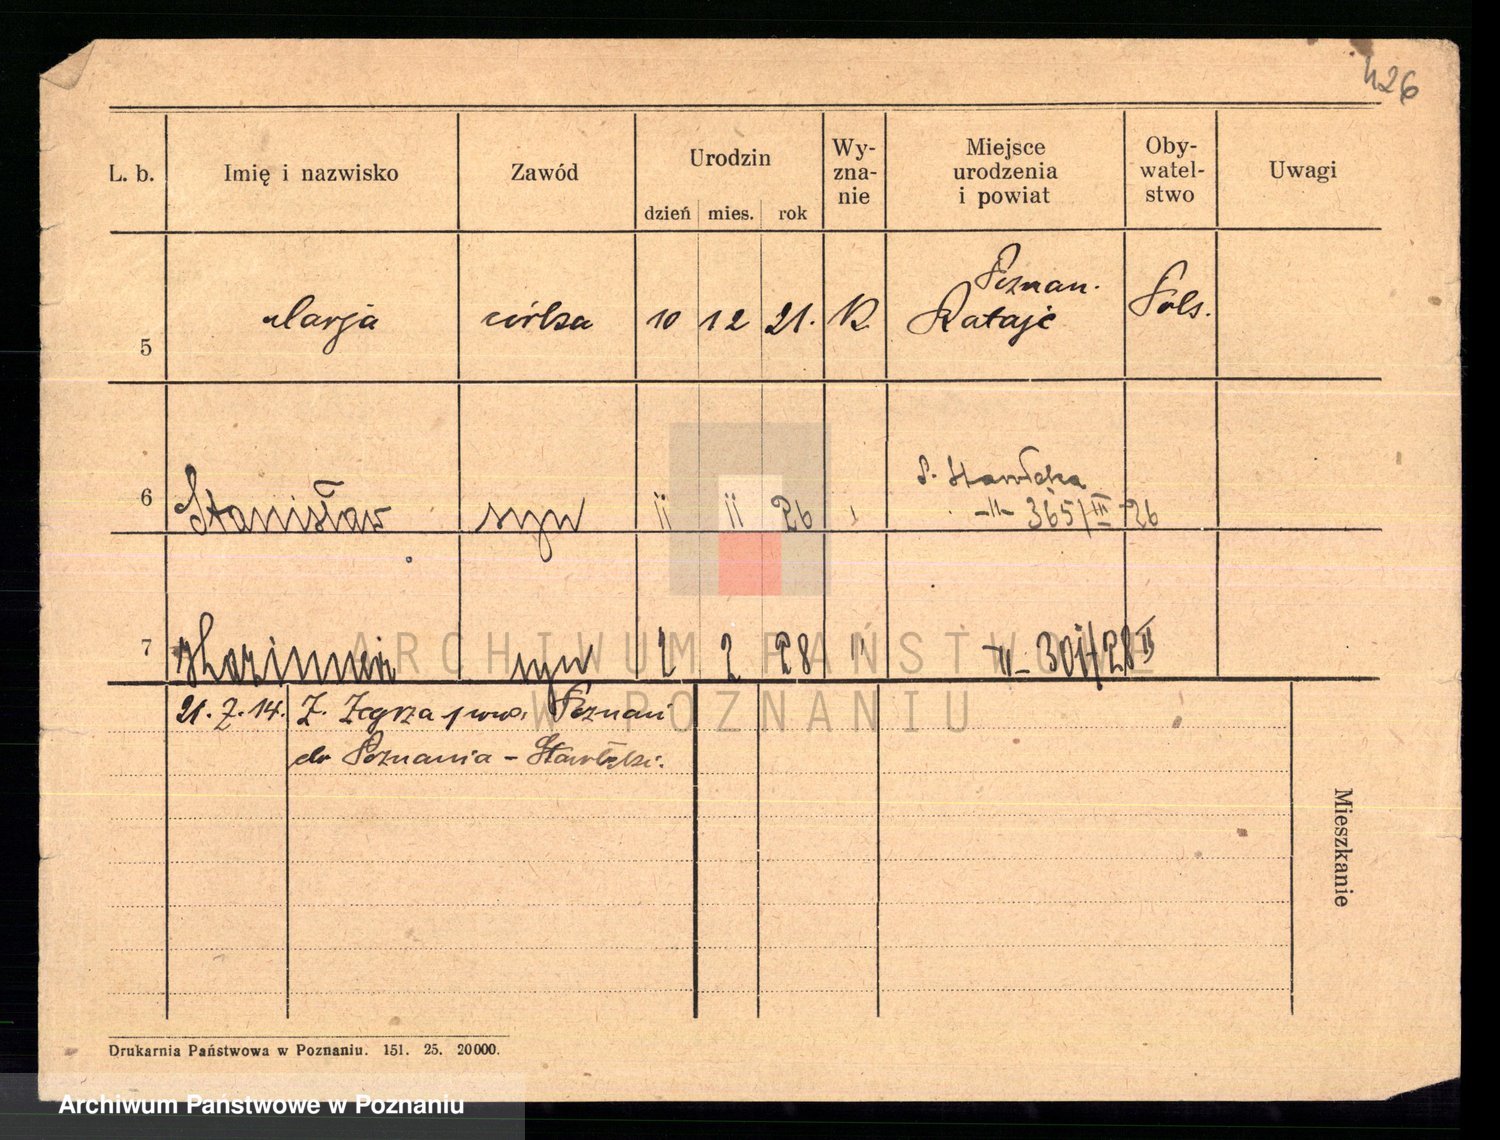 426
L. b.
Imię i nazwisko
Zawód
Urodzin
dzień mies. rok
Wy-
zna-
nie
Miejsce
urodzenia
i powiat
Oby-
watel-
stwo
Uwagi
5 Marja córka 10 12 21. K.
Poznań.
Rataje
Pols.
6 Stanisław syn 11 11 26
P. Starołęka
-"- 365/III -26
7 Kazimierz syn 2 2 28 " -"- 301/28 II
21. 7. 14. Z. Zegrza pow. Poznań
do Poznania - Starołęki.
Mieszkanie
Drukarnia Państwowa w Poznaniu. 151. 25. 20000.
ARCHIWUM PAŃSTWOWE
W POZNANIU
Archiwum Państwowe w Poznaniu